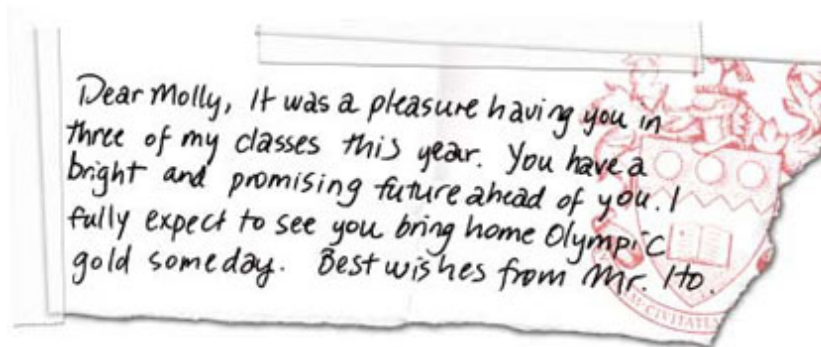 Dear Molly, It was a pleasure having you in
three of my classes this year. You have a
bright and promising future ahead of you. I
fully expect to see you bring home Olympic
gold someday. Best wishes from Mr. Ito.